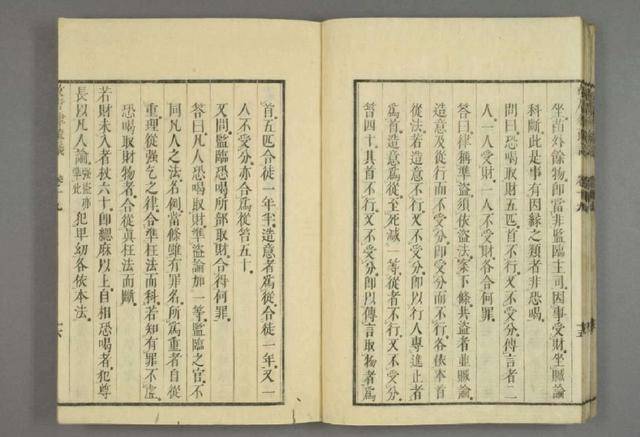 坐苗外餘物卽當非監臨主司因事受財坐贓論
科斷此是事有因緣之類者非恐喝
問曰恐喝取財五匹首不行又不受分傳言者二
人一人受財一人不受財各合何罪
答曰律稱準盜須依盜法案下條共盜者並贓論
造意及從行而不受分卽受分而不行各依本首
從法若造意不行又不受分卽以行人專進止者
爲首造意爲從至死減一等從者不行又不受分
笞四十其首不行又不受分卽以傳言取物者爲
首五匹合徒一年半造意者爲從合徒一年又一
人不受分亦合爲從笞五十
又問監臨恐喝所部取財合得何罪
答曰凡人恐喝取財準盜論加一等監臨之官不
同凡人之法名例當條雖有罪名所爲重者自從
重理從強乞之律合準枉法而科若知有罪不虛
恐喝取財物者合從眞枉法而斷
若財未入者杖六十卽緦麻以上自相恐喝者犯尊
長以凡人論強盜亦準此犯卑幼各依本法